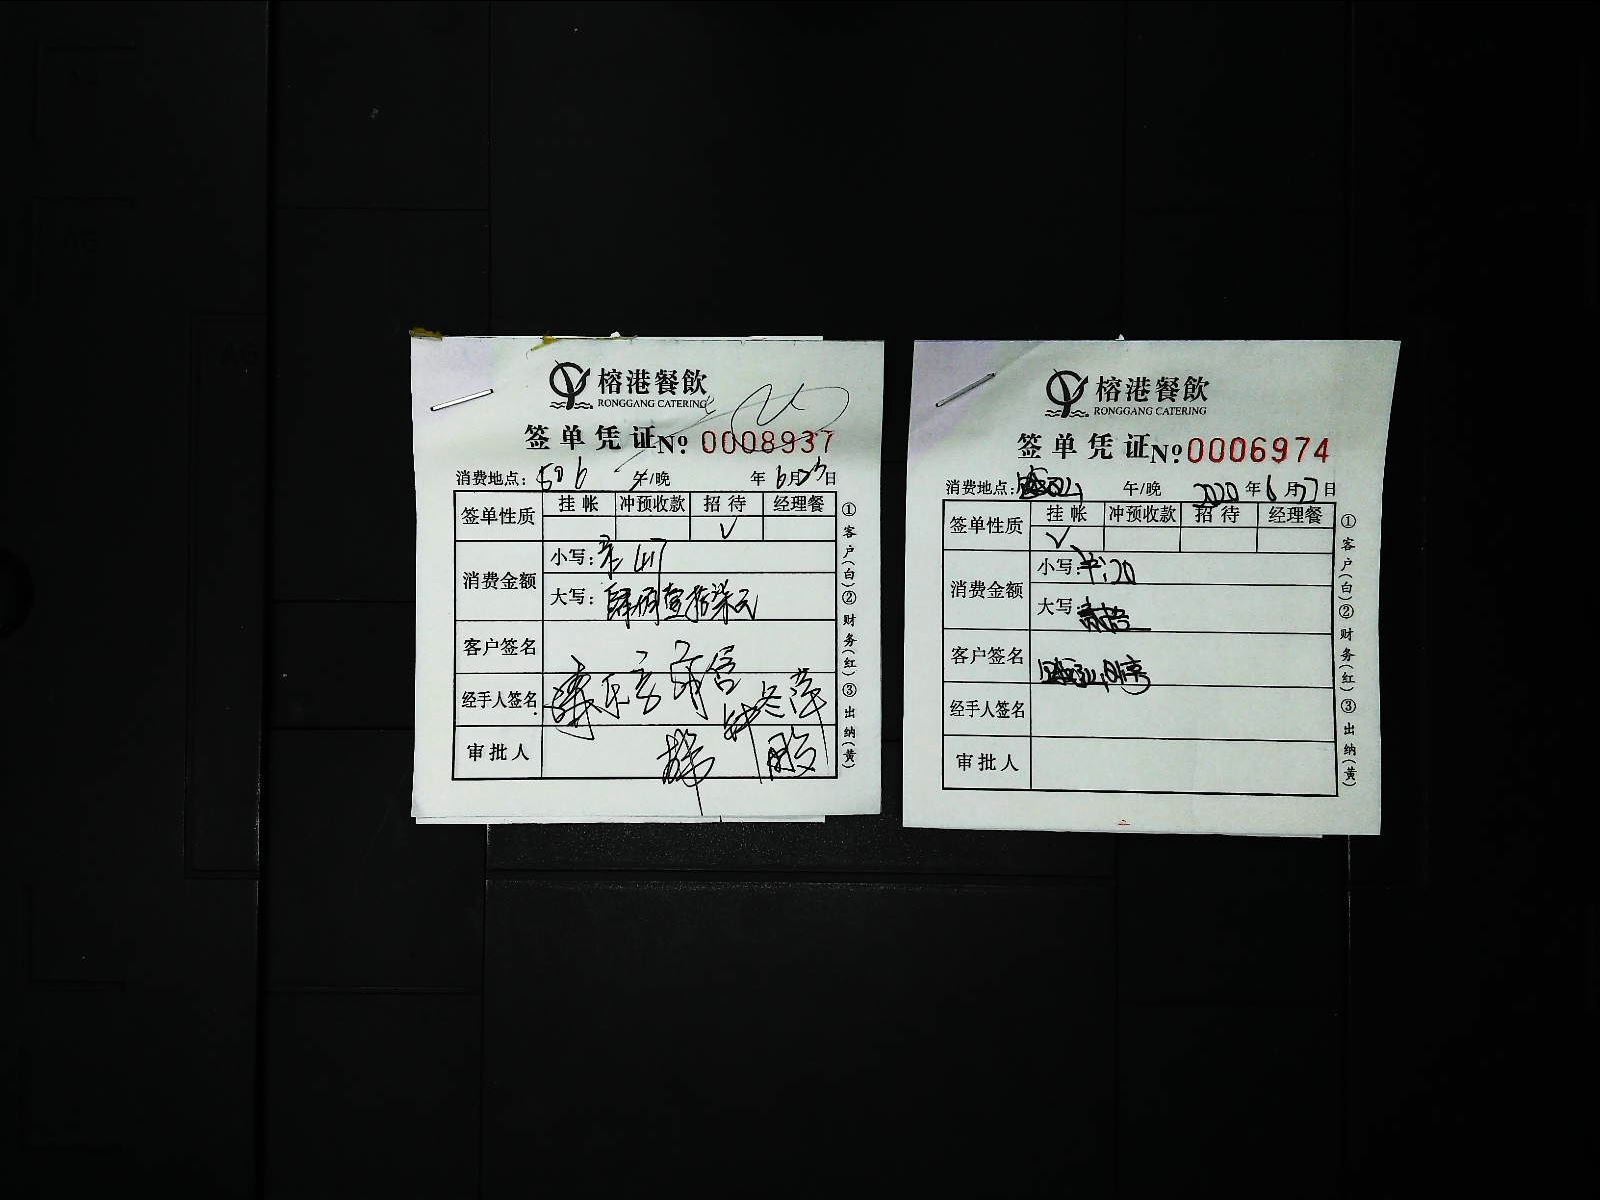 榕港餐飲
RONGGANG CATERING
签单凭证 Nº 0008937
消费地点：506 午/晚 年6月23日
签单性质 挂帐 冲预收款 招待 经理餐
√
消费金额 小写：417
大写：肆佰壹拾柒元
客户签名
经手人签名
审批人
①客户(白)②财务(红)③出纳(黄)
榕港餐飲
RONGGANG CATERING
签单凭证 Nº 0006974
消费地点： 午/晚 2020年6月27日
签单性质 挂帐 冲预收款 招待 经理餐
√
消费金额 小写：20
大写：
客户签名
经手人签名
审批人
①客户(白)②财务(红)③出纳(黄)